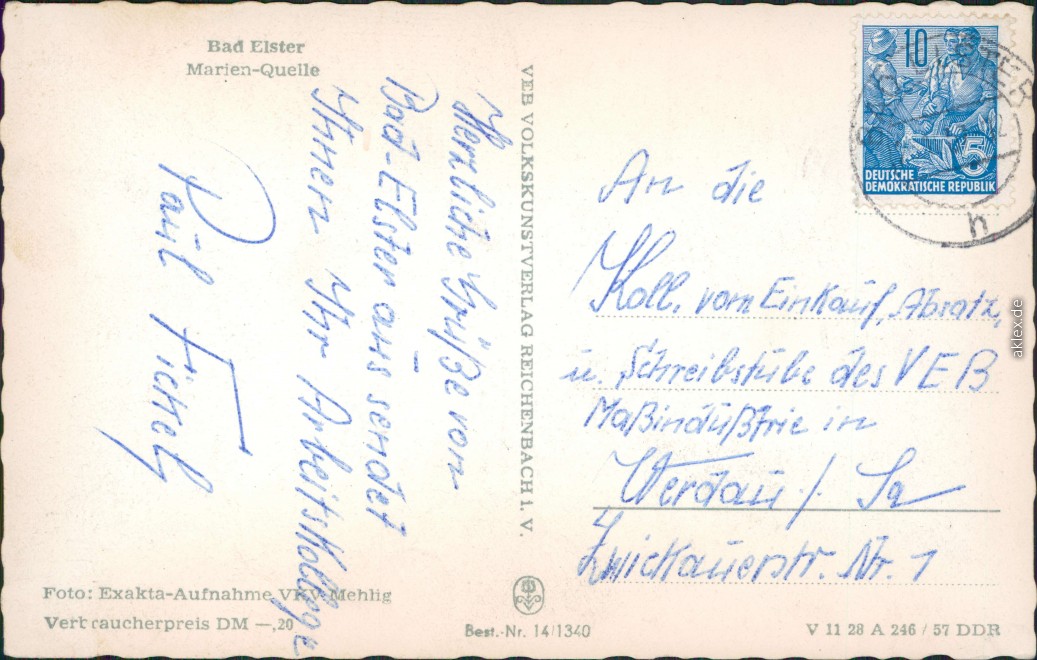 Bad Elster
Marien-Quelle
Herzliche Grüße von
Bad-Elster aus sendet
Ihnen Ihr Arbeitskollege
Paul Fickel
Foto: Exakta-Aufnahme VKV Mehlig
Verbraucherpreis DM —,20
VEB VOLKSKUNSTVERLAG REICHENBACH i. V.
Best.-Nr. 14/1340
10
5
DEUTSCHE
DEMOKRATISCHE REPUBLIK
BAD ELSTER
h
An die
Koll. vom Einkauf, Absatz,
u. Schreibstube des VEB
Maßindußtrie in
Werdau / Sa
Zwickauerstr. Nr. 1
V 11 28 A 246 / 57 DDR
aklex.de